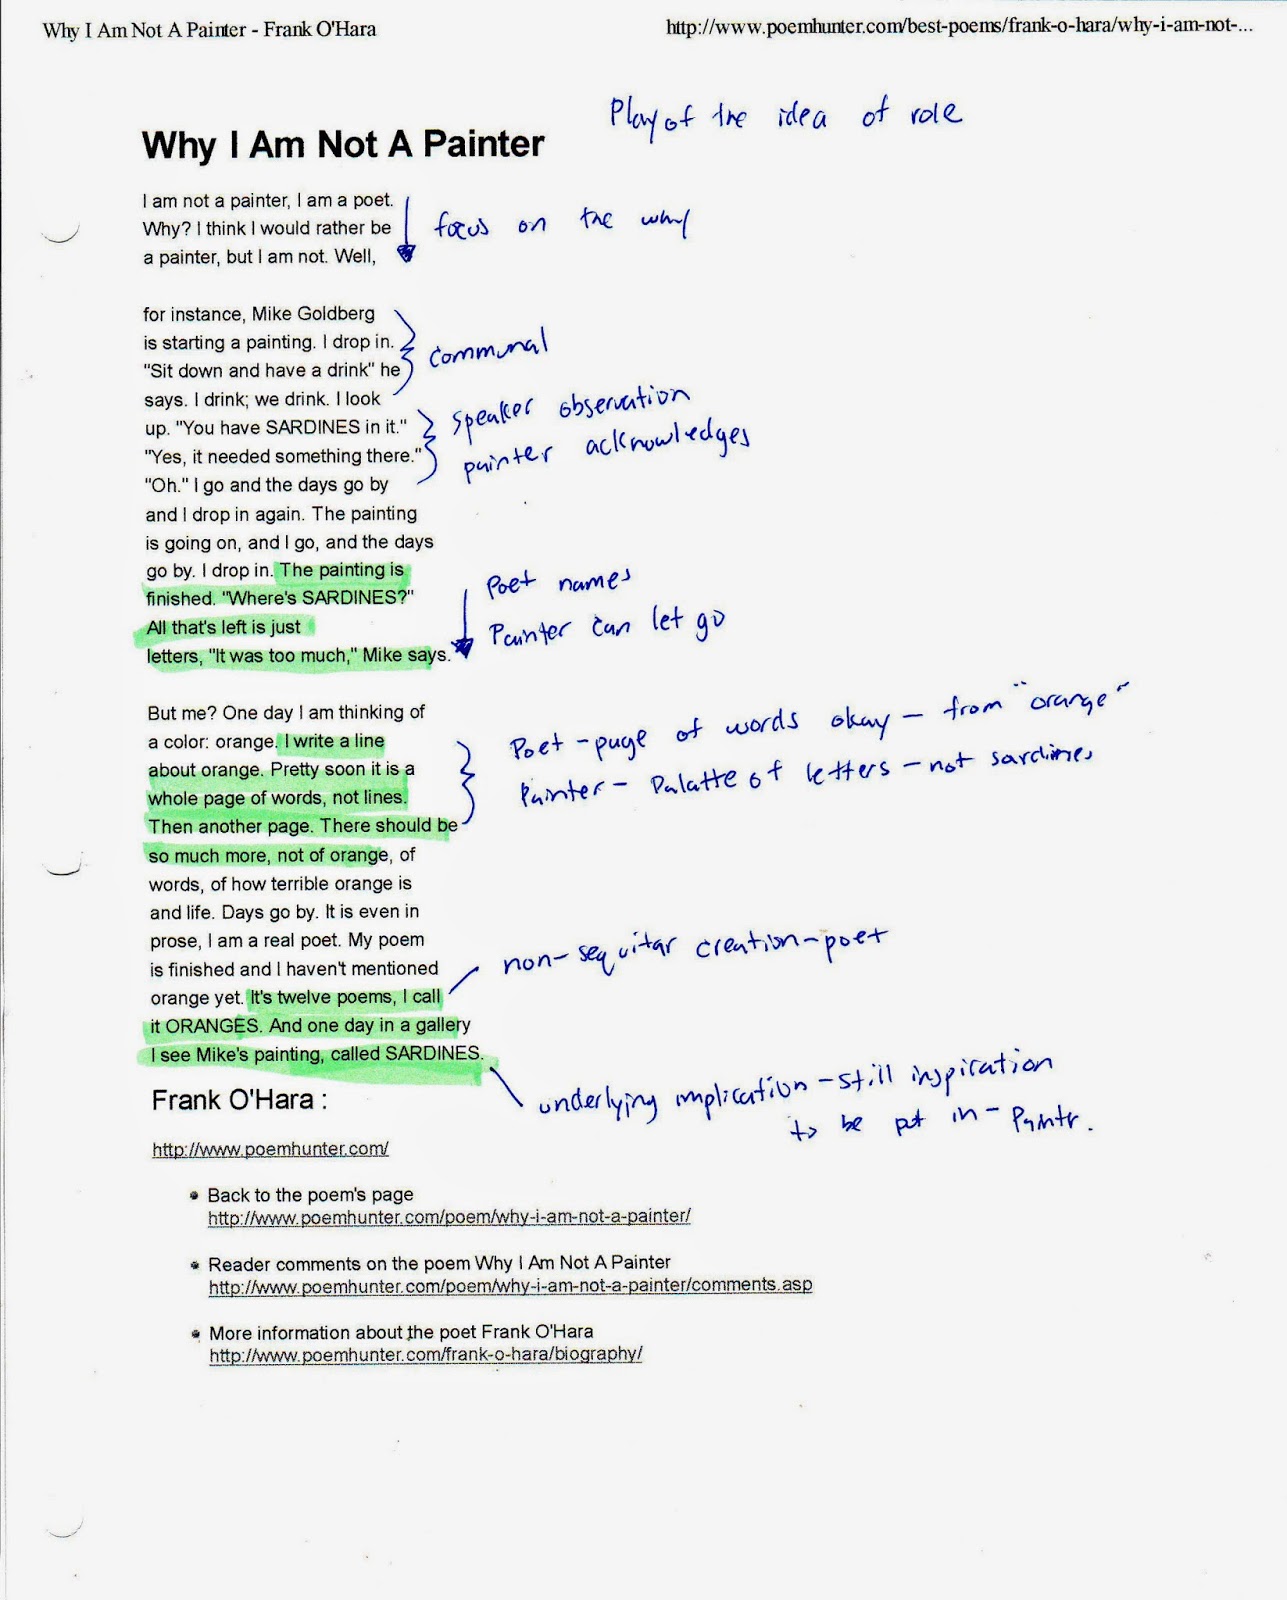 Why I Am Not A Painter - Frank O'Hara
http://www.poemhunter.com/best-poems/frank-o-hara/why-i-am-not-...
Play of the idea of role
Why I Am Not A Painter
I am not a painter, I am a poet.
Why? I think I would rather be
a painter, but I am not. Well,
focus on the why
for instance, Mike Goldberg
is starting a painting. I drop in.
"Sit down and have a drink" he
says. I drink; we drink. I look
communal
up. "You have SARDINES in it."
"Yes, it needed something there."
"Oh." I go and the days go by
speaker observation
painter acknowledges
and I drop in again. The painting
is going on, and I go, and the days
go by. I drop in. The painting is
finished. "Where's SARDINES?"
All that's left is just
letters, "It was too much," Mike says.
Poet names
Painter can let go
But me? One day I am thinking of
a color: orange. I write a line
about orange. Pretty soon it is a
whole page of words, not lines.
Then another page. There should be
Poet - page of words okay - from "orange"
Painter - Palatte of letters - not sardines
so much more, not of orange, of
words, of how terrible orange is
and life. Days go by. It is even in
prose, I am a real poet. My poem
is finished and I haven't mentioned
orange yet. It's twelve poems, I call
non-sequitar creation - poet
it ORANGES. And one day in a gallery
I see Mike's painting, called SARDINES.
underlying implication - still inspiration
to be put in - Paintr.
Frank O'Hara :
http://www.poemhunter.com/
Back to the poem's page
http://www.poemhunter.com/poem/why-i-am-not-a-painter/
Reader comments on the poem Why I Am Not A Painter
http://www.poemhunter.com/poem/why-i-am-not-a-painter/comments.asp
More information about the poet Frank O'Hara
http://www.poemhunter.com/frank-o-hara/biography/